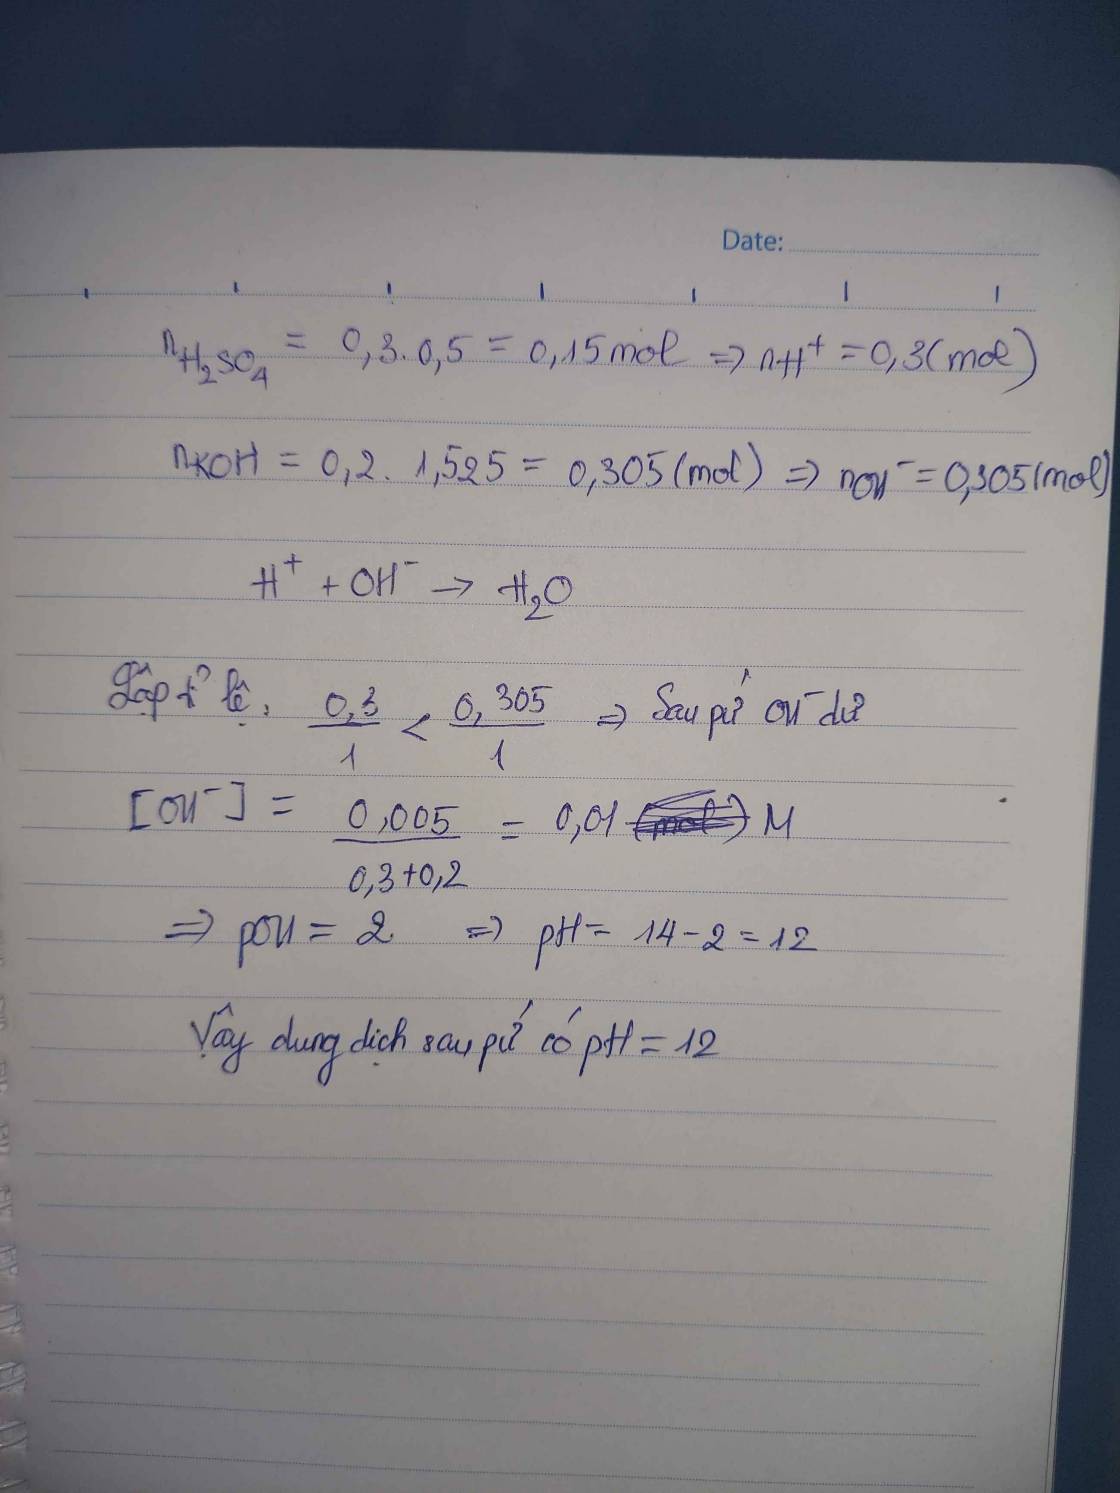 Date:
nH₂SO₄ = 0,3.0,5 = 0,15 mol => nH⁺ = 0,3(mol)
nKOH = 0,2. 1,525 = 0,305(mol) => nOH⁻ = 0,305(mol)
H⁺ + OH⁻ → H₂O
Lập tỉ lệ, 0,3/1 < 0,305/1 => Sau pứ OH⁻ dư
[OH⁻] = 0,005/(0,3+0,2) = 0,01 (mol) M
=> pOH = 2. => pH = 14-2 = 12
Vậy dung dịch sau pứ có pH = 12